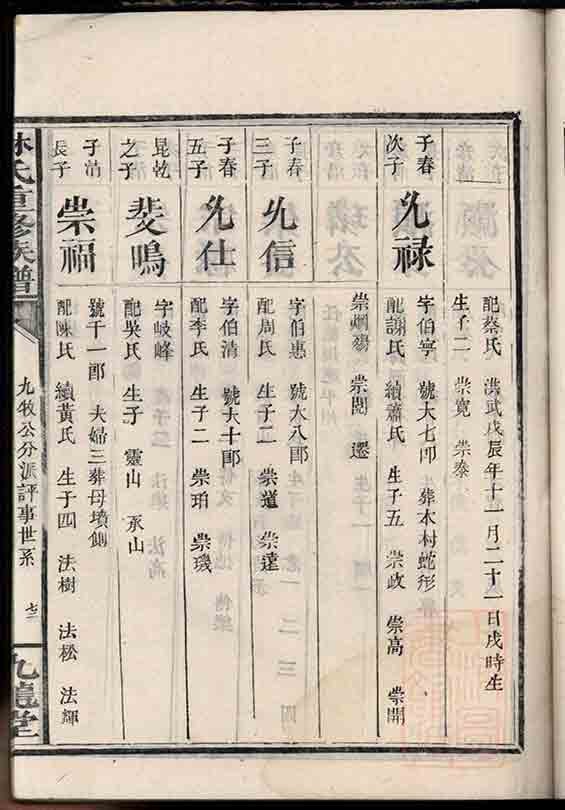 配蔡氏 洪武戊辰年十一月二十一日戌時生
生子二 崇寛 崇泰
子春
次子
允禄
字伯寧 號大七郎 葬本村蛇形
配謝氏 續蕭氏 生子五 崇政 崇高 崇開
崇爛殤 崇閱 遷
子春
三子
允信
字伯惠 號大八郎
配周氏 生子二 崇道 崇達
子春
五子
允仕
字伯清 號大十郎
配李氏 生子二 崇珀 崇璣
昆乾
之子
斐鳴
字岐峰
配吳氏 生子 靈山 承山
子清
長子
崇福
號千一郎 夫婦三葬母墳側
配陳氏 續黃氏 生子四 法樹 法松 法輝
林氏重修族譜
九牧公分派評事世系
九龍堂